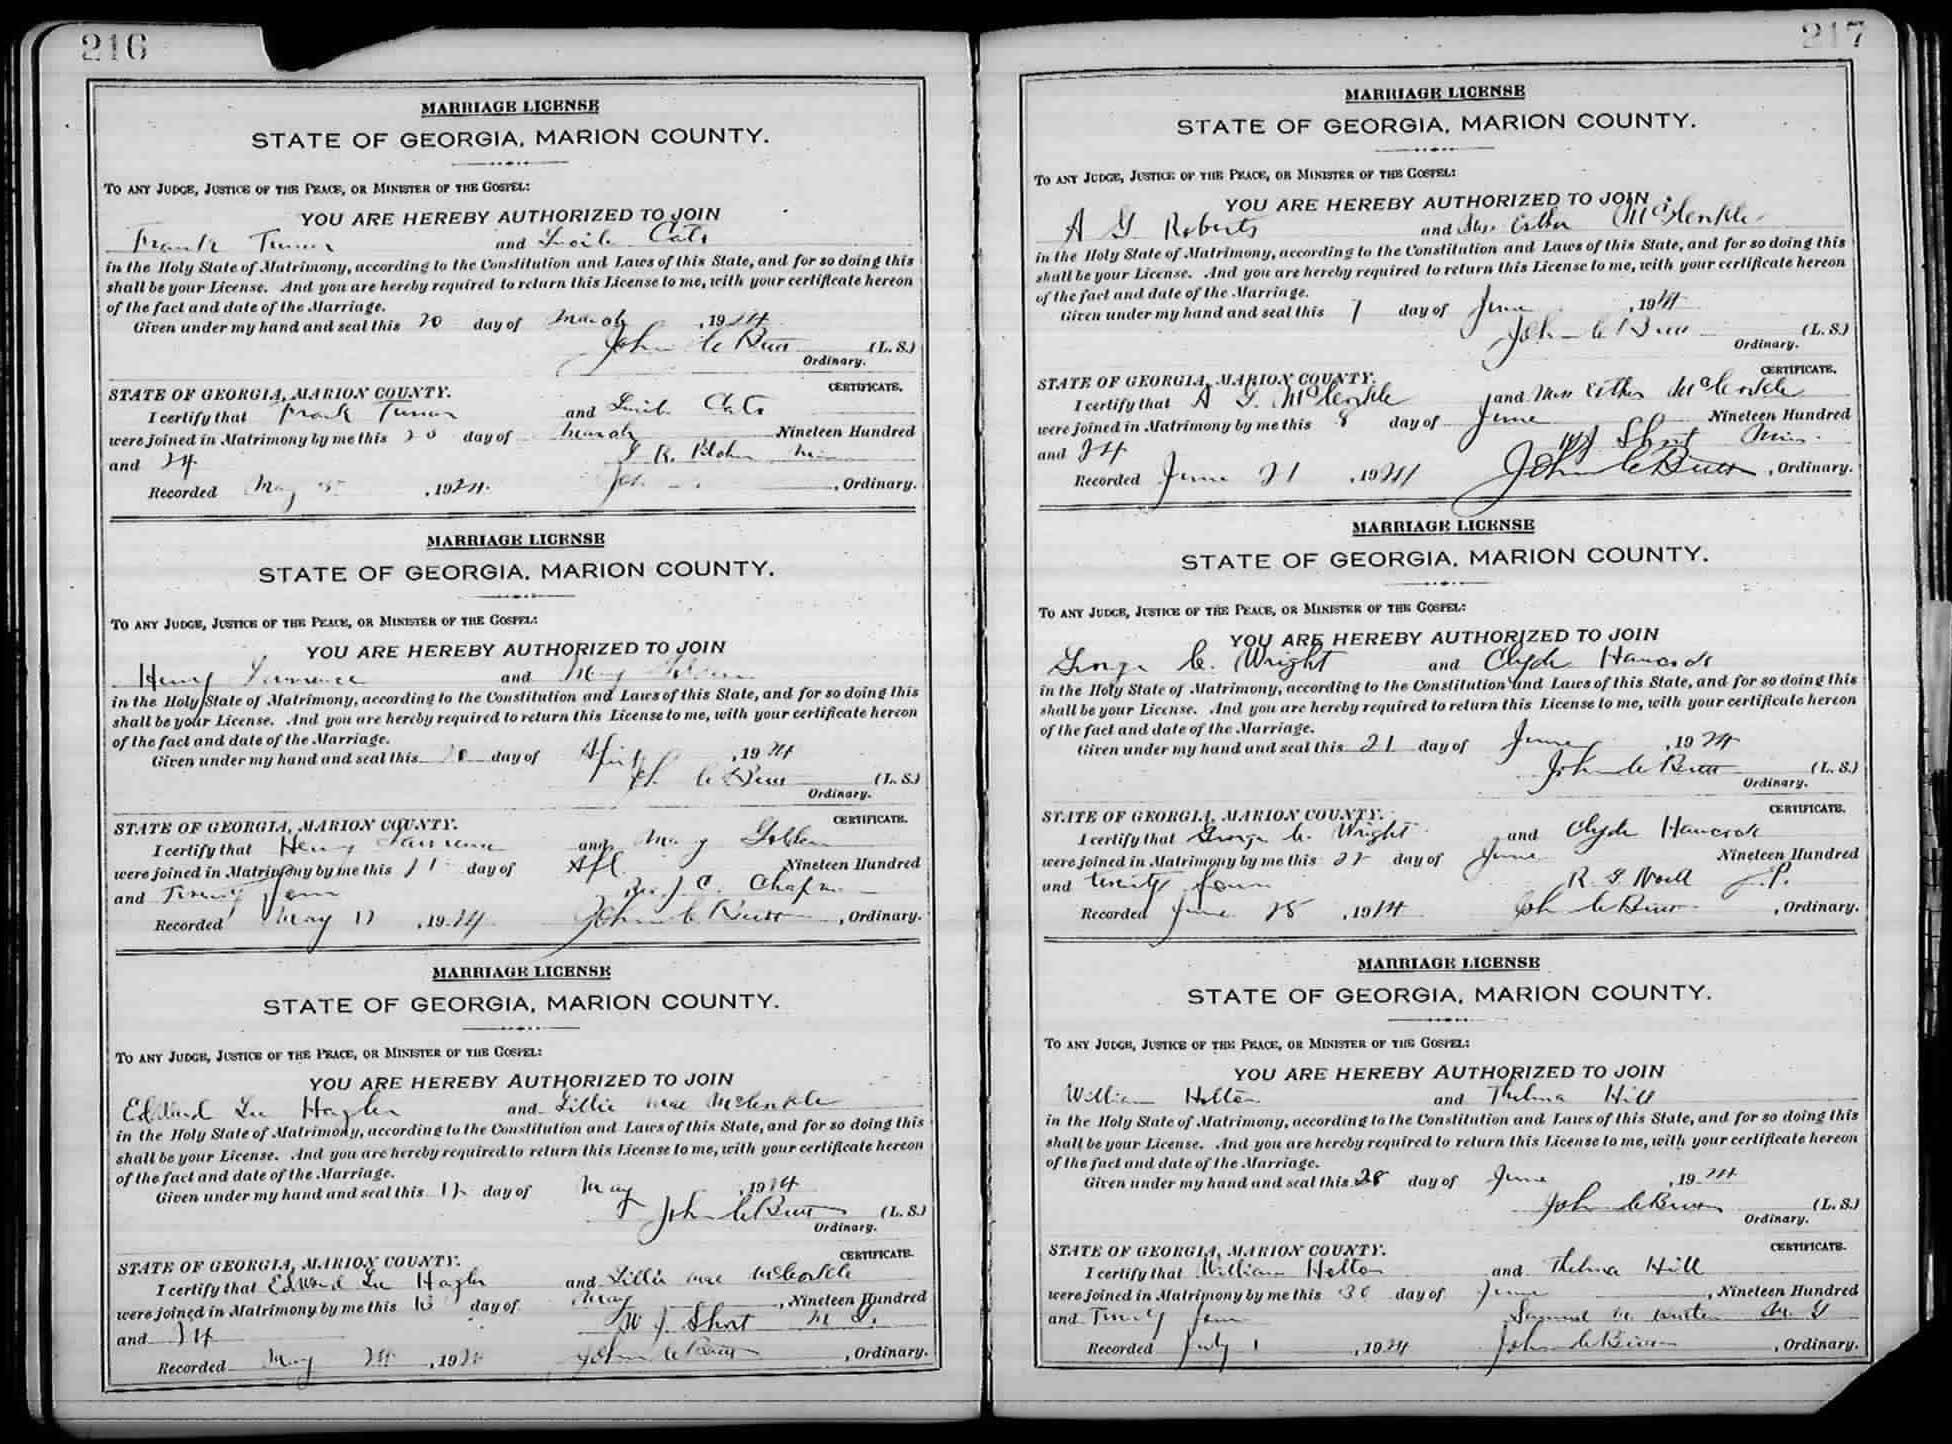 216
MARRIAGE LICENSE
STATE OF GEORGIA, MARION COUNTY.
TO ANY JUDGE, JUSTICE OF THE PEACE, OR MINISTER OF THE GOSPEL:
YOU ARE HEREBY AUTHORIZED TO JOIN
Frank Turner and Lucile Cato
in the Holy State of Matrimony, according to the Constitution and Laws of this State, and for so doing this
shall be your License. And you are hereby required to return this License to me, with your certificate hereon
of the fact and date of the Marriage.
Given under my hand and seal this 20 day of March, 1924
John C Butt (L. S.)
Ordinary.
STATE OF GEORGIA, MARION COUNTY. CERTIFICATE.
I certify that Frank Turner and Lucile Cato
were joined in Matrimony by me this 20 day of March Nineteen Hundred
and 24
Recorded May, 1924. , Ordinary.
MARRIAGE LICENSE
STATE OF GEORGIA, MARION COUNTY.
TO ANY JUDGE, JUSTICE OF THE PEACE, OR MINISTER OF THE GOSPEL:
YOU ARE HEREBY AUTHORIZED TO JOIN
Henry Lawrence and Mary
in the Holy State of Matrimony, according to the Constitution and Laws of this State, and for so doing this
shall be your License. And you are hereby required to return this License to me, with your certificate hereon
of the fact and date of the Marriage.
Given under my hand and seal this day of April, 1924
C Butt (L. S.)
Ordinary.
STATE OF GEORGIA, MARION COUNTY. CERTIFICATE.
I certify that Henry Lawrence and Mary
were joined in Matrimony by me this day of Apl Nineteen Hundred
and Twenty four Rev. J. C.
Recorded May 12, 1924 John C Butt, Ordinary.
MARRIAGE LICENSE
STATE OF GEORGIA, MARION COUNTY.
TO ANY JUDGE, JUSTICE OF THE PEACE, OR MINISTER OF THE GOSPEL:
YOU ARE HEREBY AUTHORIZED TO JOIN
Edward Lee Hagler and Lillie Mae McCorkle
in the Holy State of Matrimony, according to the Constitution and Laws of this State, and for so doing this
shall be your License. And you are hereby required to return this License to me, with your certificate hereon
of the fact and date of the Marriage.
Given under my hand and seal this 12 day of May, 1924
John C Butt (L. S.)
Ordinary.
STATE OF GEORGIA, MARION COUNTY. CERTIFICATE.
I certify that Edward Lee Hagler and Lillie Mae McCorkle
were joined in Matrimony by me this day of May, Nineteen Hundred
and 24 W J. Short
Recorded May 24, 1924 John C Butt, Ordinary.
217
MARRIAGE LICENSE
STATE OF GEORGIA, MARION COUNTY.
TO ANY JUDGE, JUSTICE OF THE PEACE, OR MINISTER OF THE GOSPEL:
YOU ARE HEREBY AUTHORIZED TO JOIN
A G. Roberts and Miss Esther McCorkle
in the Holy State of Matrimony, according to the Constitution and Laws of this State, and for so doing this
shall be your License. And you are hereby required to return this License to me, with your certificate hereon
of the fact and date of the Marriage.
Given under my hand and seal this 7 day of June, 1924
John C Butt (L. S.)
Ordinary.
STATE OF GEORGIA, MARION COUNTY. CERTIFICATE.
I certify that A G. McCorkle and Miss Esther McCorkle
were joined in Matrimony by me this 8 day of June Nineteen Hundred
and 24 W J Short Min.
Recorded June 21, 1924 John C Butt, Ordinary.
MARRIAGE LICENSE
STATE OF GEORGIA, MARION COUNTY.
TO ANY JUDGE, JUSTICE OF THE PEACE, OR MINISTER OF THE GOSPEL:
YOU ARE HEREBY AUTHORIZED TO JOIN
George C. Wright and Clyde Hancock
in the Holy State of Matrimony, according to the Constitution and Laws of this State, and for so doing this
shall be your License. And you are hereby required to return this License to me, with your certificate hereon
of the fact and date of the Marriage.
Given under my hand and seal this 21 day of June, 1924
John C Butt (L. S.)
Ordinary.
STATE OF GEORGIA, MARION COUNTY. CERTIFICATE.
I certify that George C. Wright and Clyde Hancock
were joined in Matrimony by me this 22 day of June Nineteen Hundred
and twenty four J.P.
Recorded June 28, 1924 John C Butt, Ordinary.
MARRIAGE LICENSE
STATE OF GEORGIA, MARION COUNTY.
TO ANY JUDGE, JUSTICE OF THE PEACE, OR MINISTER OF THE GOSPEL:
YOU ARE HEREBY AUTHORIZED TO JOIN
William Holton and Thelma Hill
in the Holy State of Matrimony, according to the Constitution and Laws of this State, and for so doing this
shall be your License. And you are hereby required to return this License to me, with your certificate hereon
of the fact and date of the Marriage.
Given under my hand and seal this 28 day of June, 1924
John C Butt (L. S.)
Ordinary.
STATE OF GEORGIA, MARION COUNTY. CERTIFICATE.
I certify that William Holton and Thelma Hill
were joined in Matrimony by me this 30 day of June, Nineteen Hundred
and Twenty four Samuel M. G
Recorded July 1, 1924 John C Butt, Ordinary.